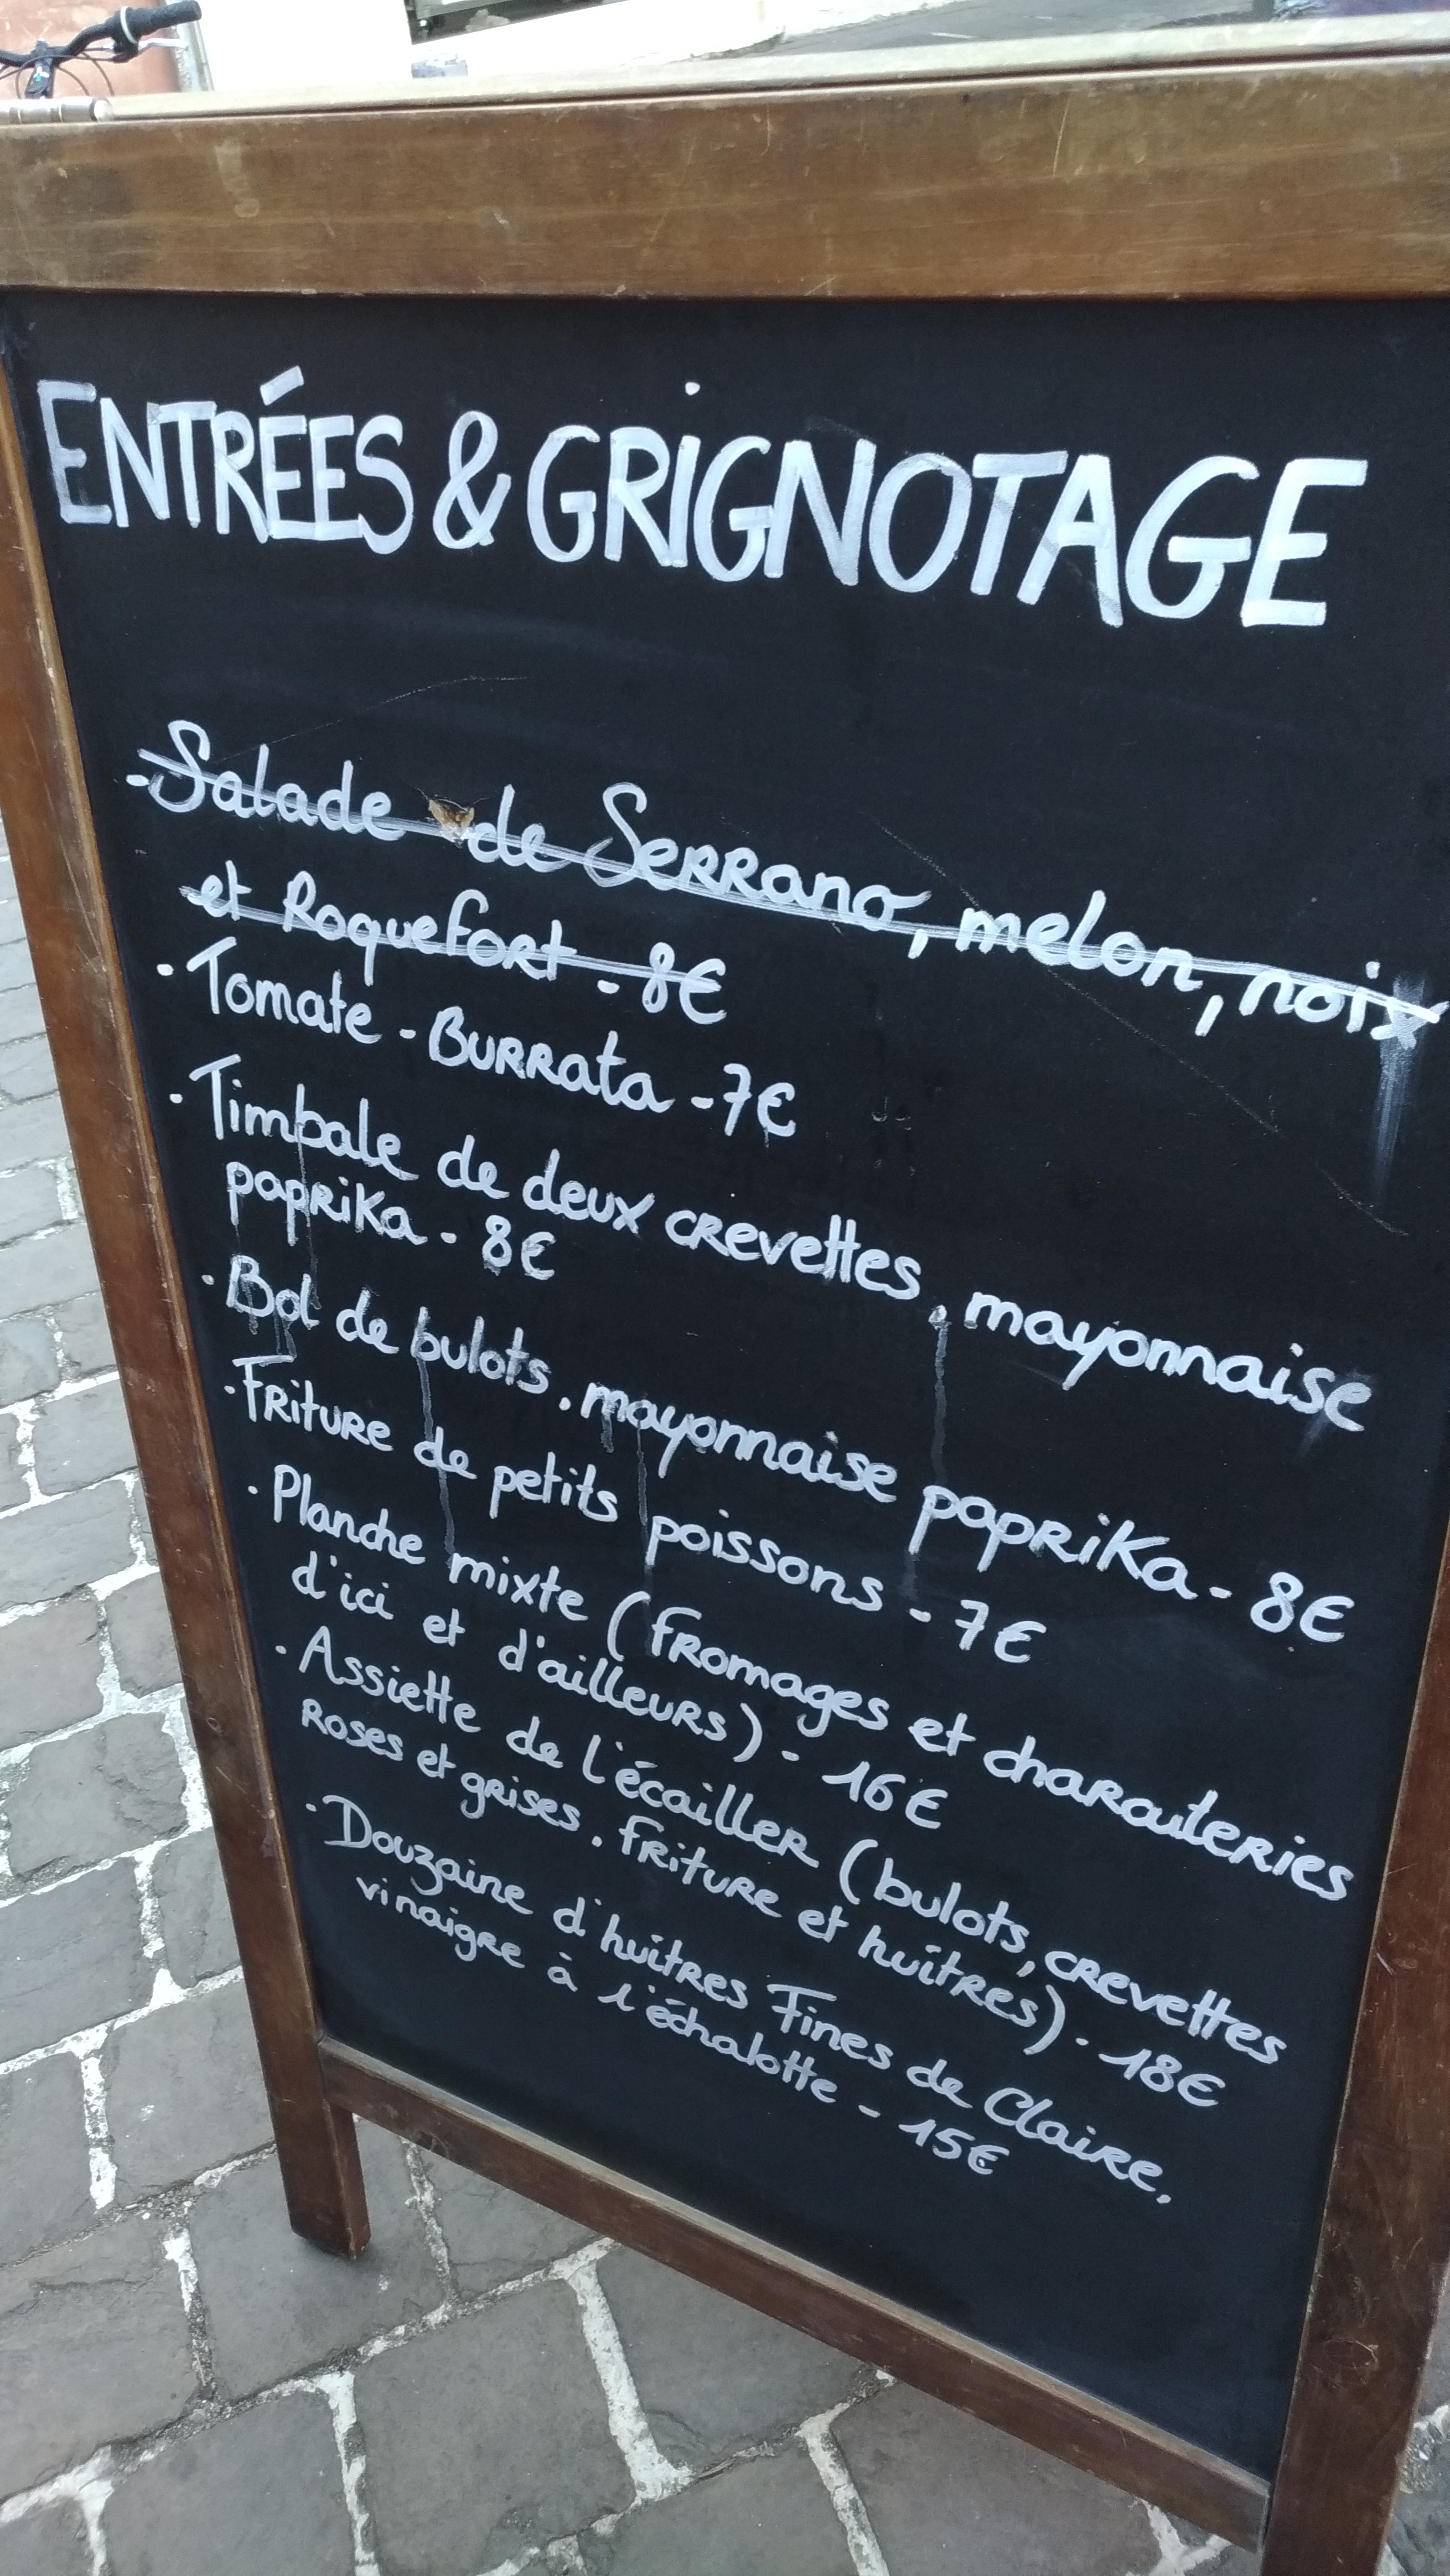 ENTRÉES & GRIGNOTAGE
· Salade de Serrano, melon, noix
et Roquefort - 8€
· Tomate - Burrata - 7€
· Timbale de deux crevettes, mayonnaise
paprika - 8€
· Bol de bulots, mayonnaise paprika - 8€
· Friture de petits poissons - 7€
· Planche mixte (fromages et charcuteries
d'ici et d'ailleurs) - 16€
· Assiette de l'écailler (bulots, crevettes
roses et grises, friture et huîtres) - 18€
· Douzaine d'huîtres Fines de Claire,
vinaigre à l'échalotte - 15€